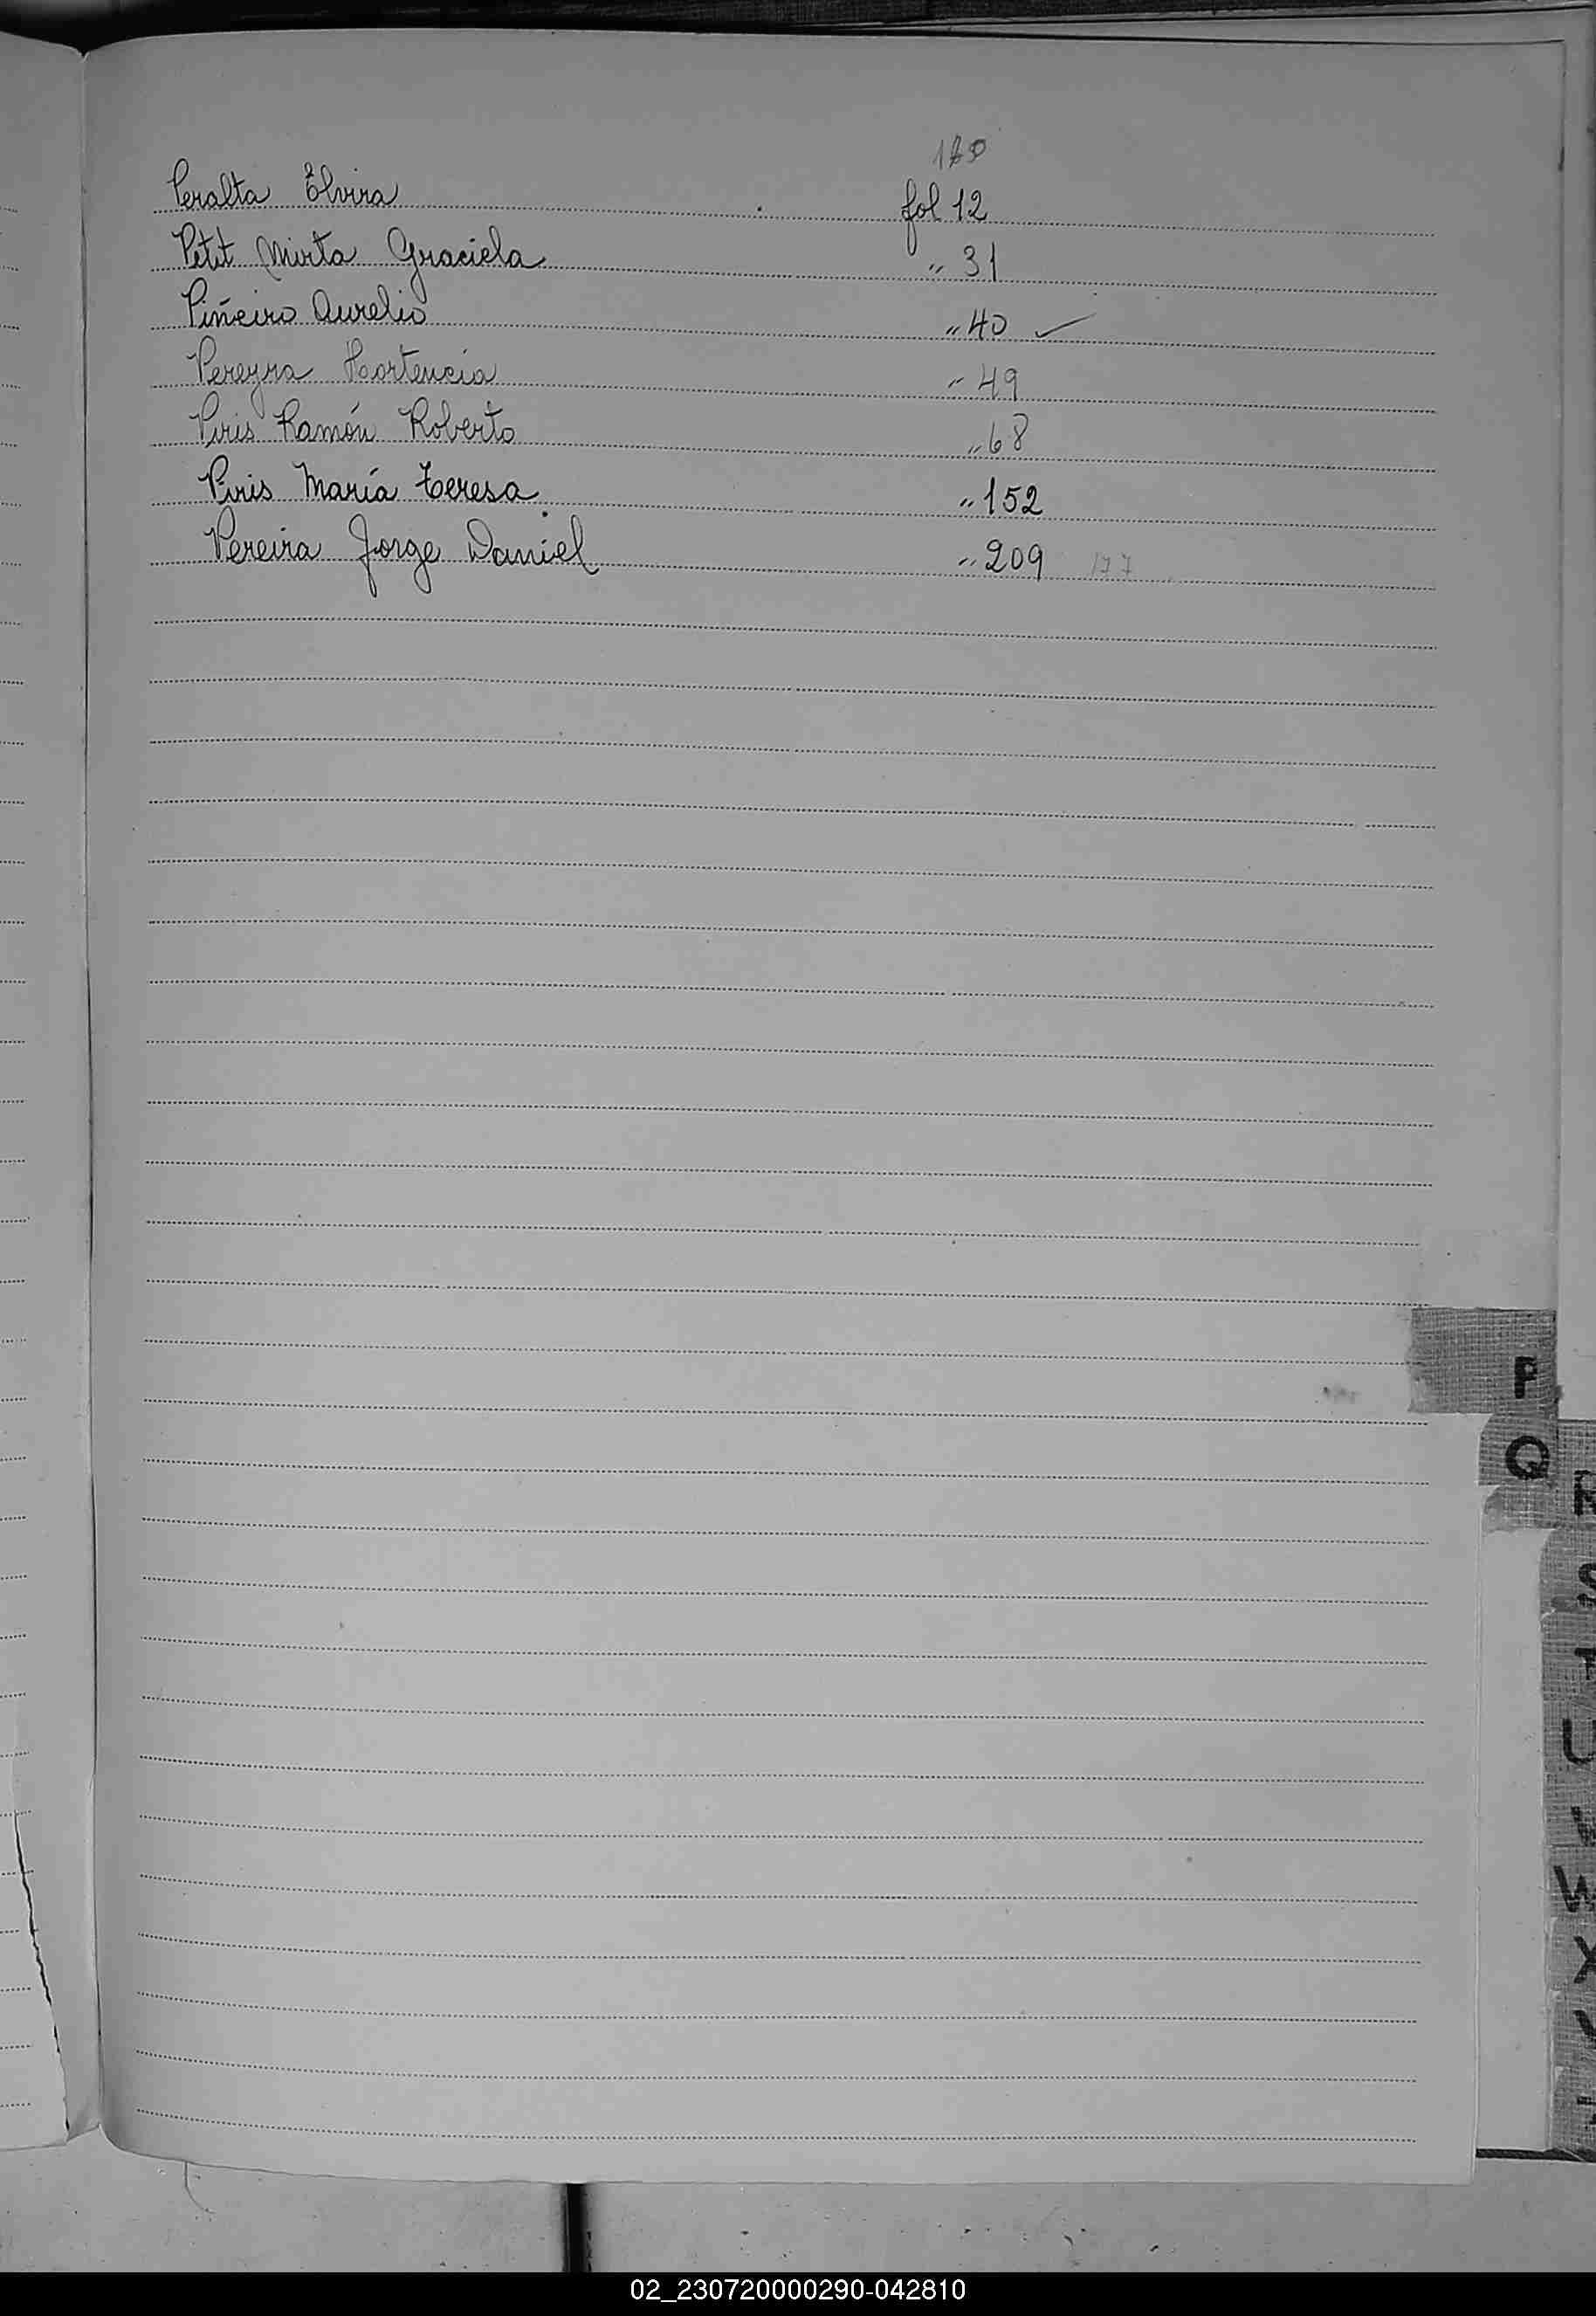 Peralta Elvira fol 12
Petit Mirta Graciela " 31
Piñeiro Aurelio " 40 ✓
Pereyra Hortencia " 49
Piris Ramón Roberto " 68
Piris María Teresa " 152
Pereira Jorge Daniel " 209 177
P
Q
R
S
T
U
V
W
X
02_230720000290-042810